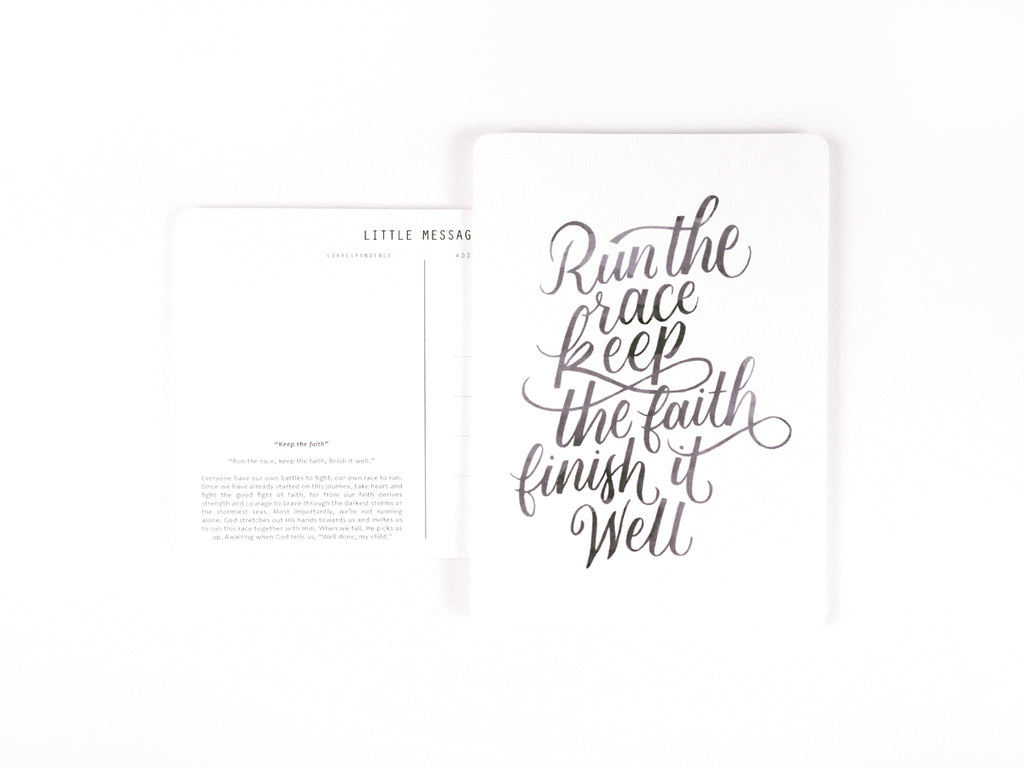 LITTLE MESSAG
CORRESPONDENCE
ADD
"Keep the faith"
"Run the race, keep the faith, finish it well."
Everyone have our own battles to fight, our own race to run.
Since we have already started on this journey, take heart and
fight the good fight of faith, for from our faith derives
strength and courage to brave through the darkest storms or
the stormiest seas. Most importantly, we're not running
alone. God stretches out His hands towards us and invites us
to run this race together with Him. When we fall, He picks us
up. Awaiting when God tells us, "Well done, my child."
Run the
race
keep
the faith
finish it
Well